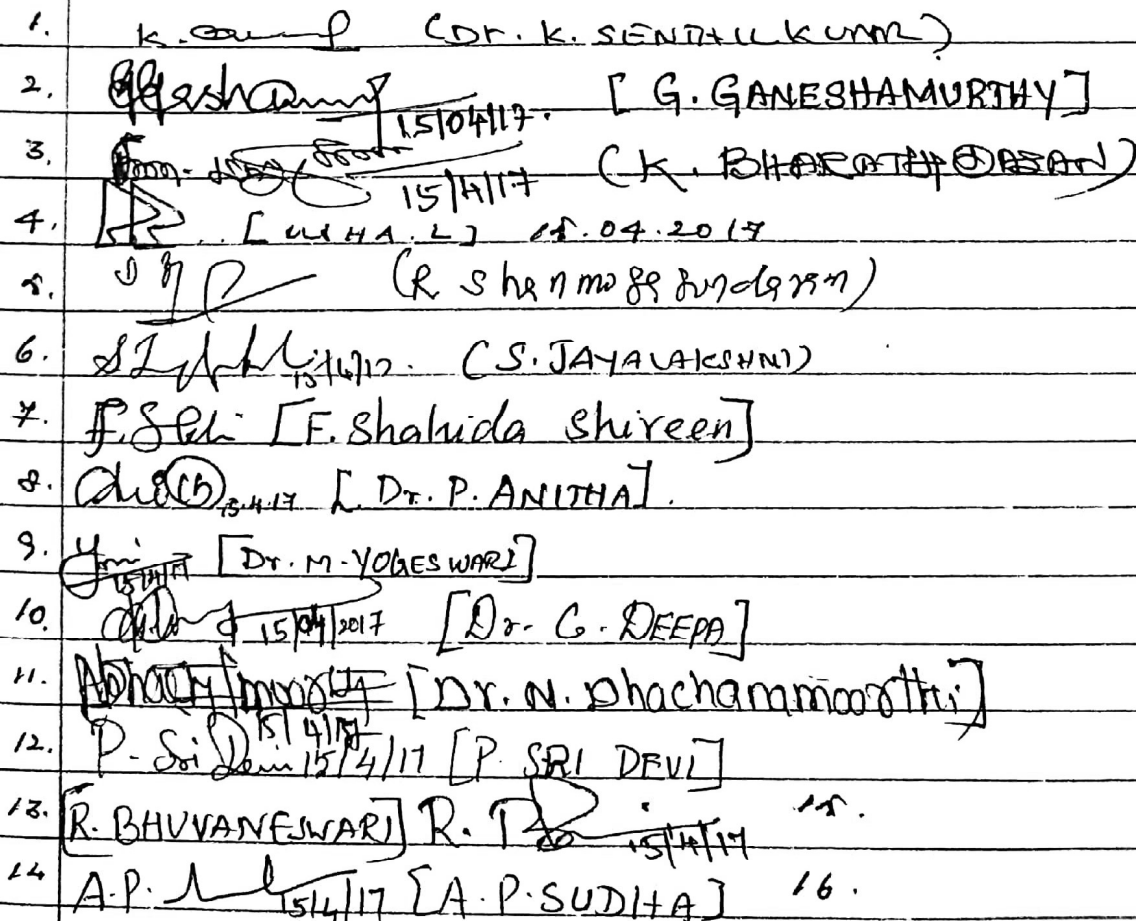 1. (Dr. K. SENTHIL KUMAR)
2. 15/04/17. [G. GANESHAMURTHY]
3. 15/4/17 (K. BHARATHIDASAN)
4. [USHA. L] 15.04.2017
5. (R Shanmugasundaram)
6. 15/4/17. (S. JAYALAKSHMI)
7. [F. Shahida Shireen]
8. 15.4.17 [Dr. P. ANITHA].
9. 15/4/17 [Dr. M. YOGESWARI]
10. 15/04/2017 [Dr. G. DEEPA]
11. [Dr. N. Dhachanamoorthi]
15/4/17
12. P. Sri Devi 15/4/17 [P. SRI DEVI]
13. [R. BHUVANESWARI] R. 15/4/17 15.
14 A.P. 15/4/17 [A.P. SUDHA] 16.